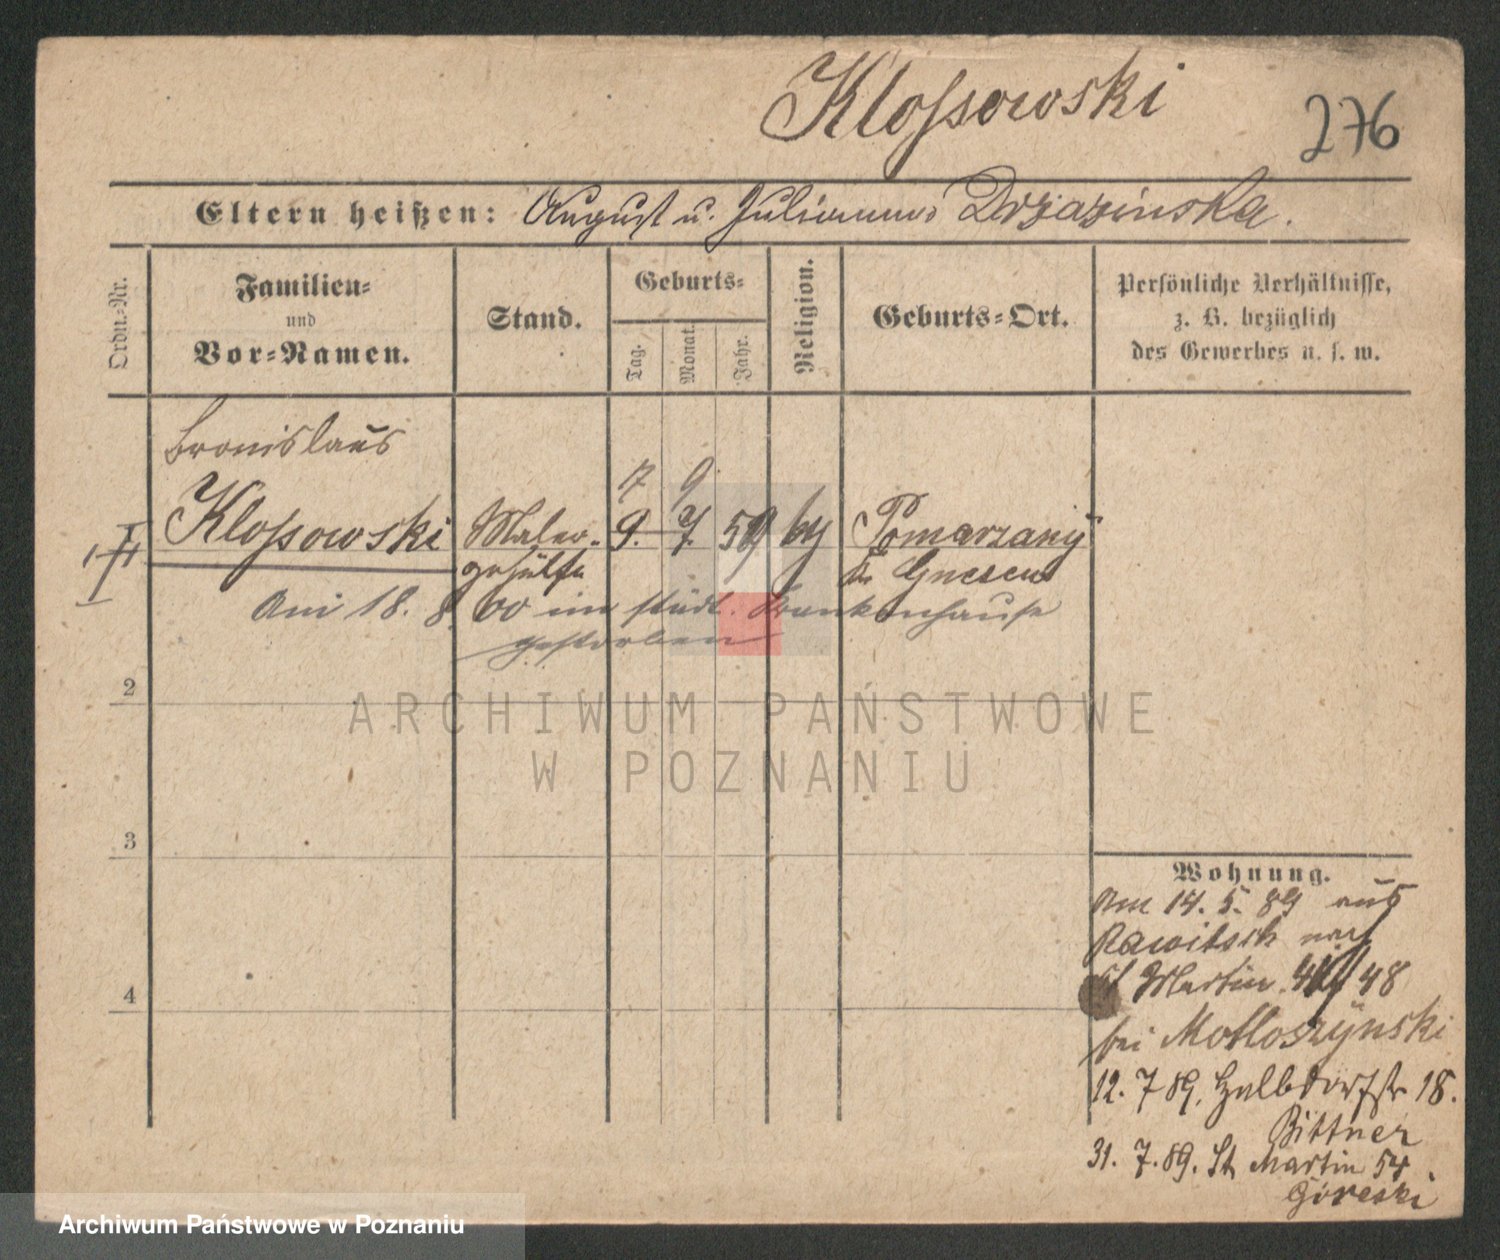 Klossowski
276
Eltern heißen: August u. Julianna Drzazinska.
Ordn.-Nr.
Familien-
und
Vor-Namen.
Stand.
Geburts-
Tag.
Monat.
Jahr.
Religion.
Geburts-Ort.
Persönliche Verhältnisse,
z. B. bezüglich
des Gewerbes u. s. w.
Bronislaus
7 9
Klossowski Maler- 9. 7. 59 Pomarzany
gehülfe Kr. Gnesen
Am 18. 8. 00 im städt. Krankenhause
gestorben
2
3
4
Wohnung.
Am 14. 5. 89 aus
Rawitsch nach
St Martin 48
bei Motloszynski
12. 7 89. Halbdorfstr 18.
Bittner
31. 7. 89. St Martin 54
Góreski
ARCHIWUM PAŃSTWOWE
W POZNANIU
Archiwum Państwowe w Poznaniu